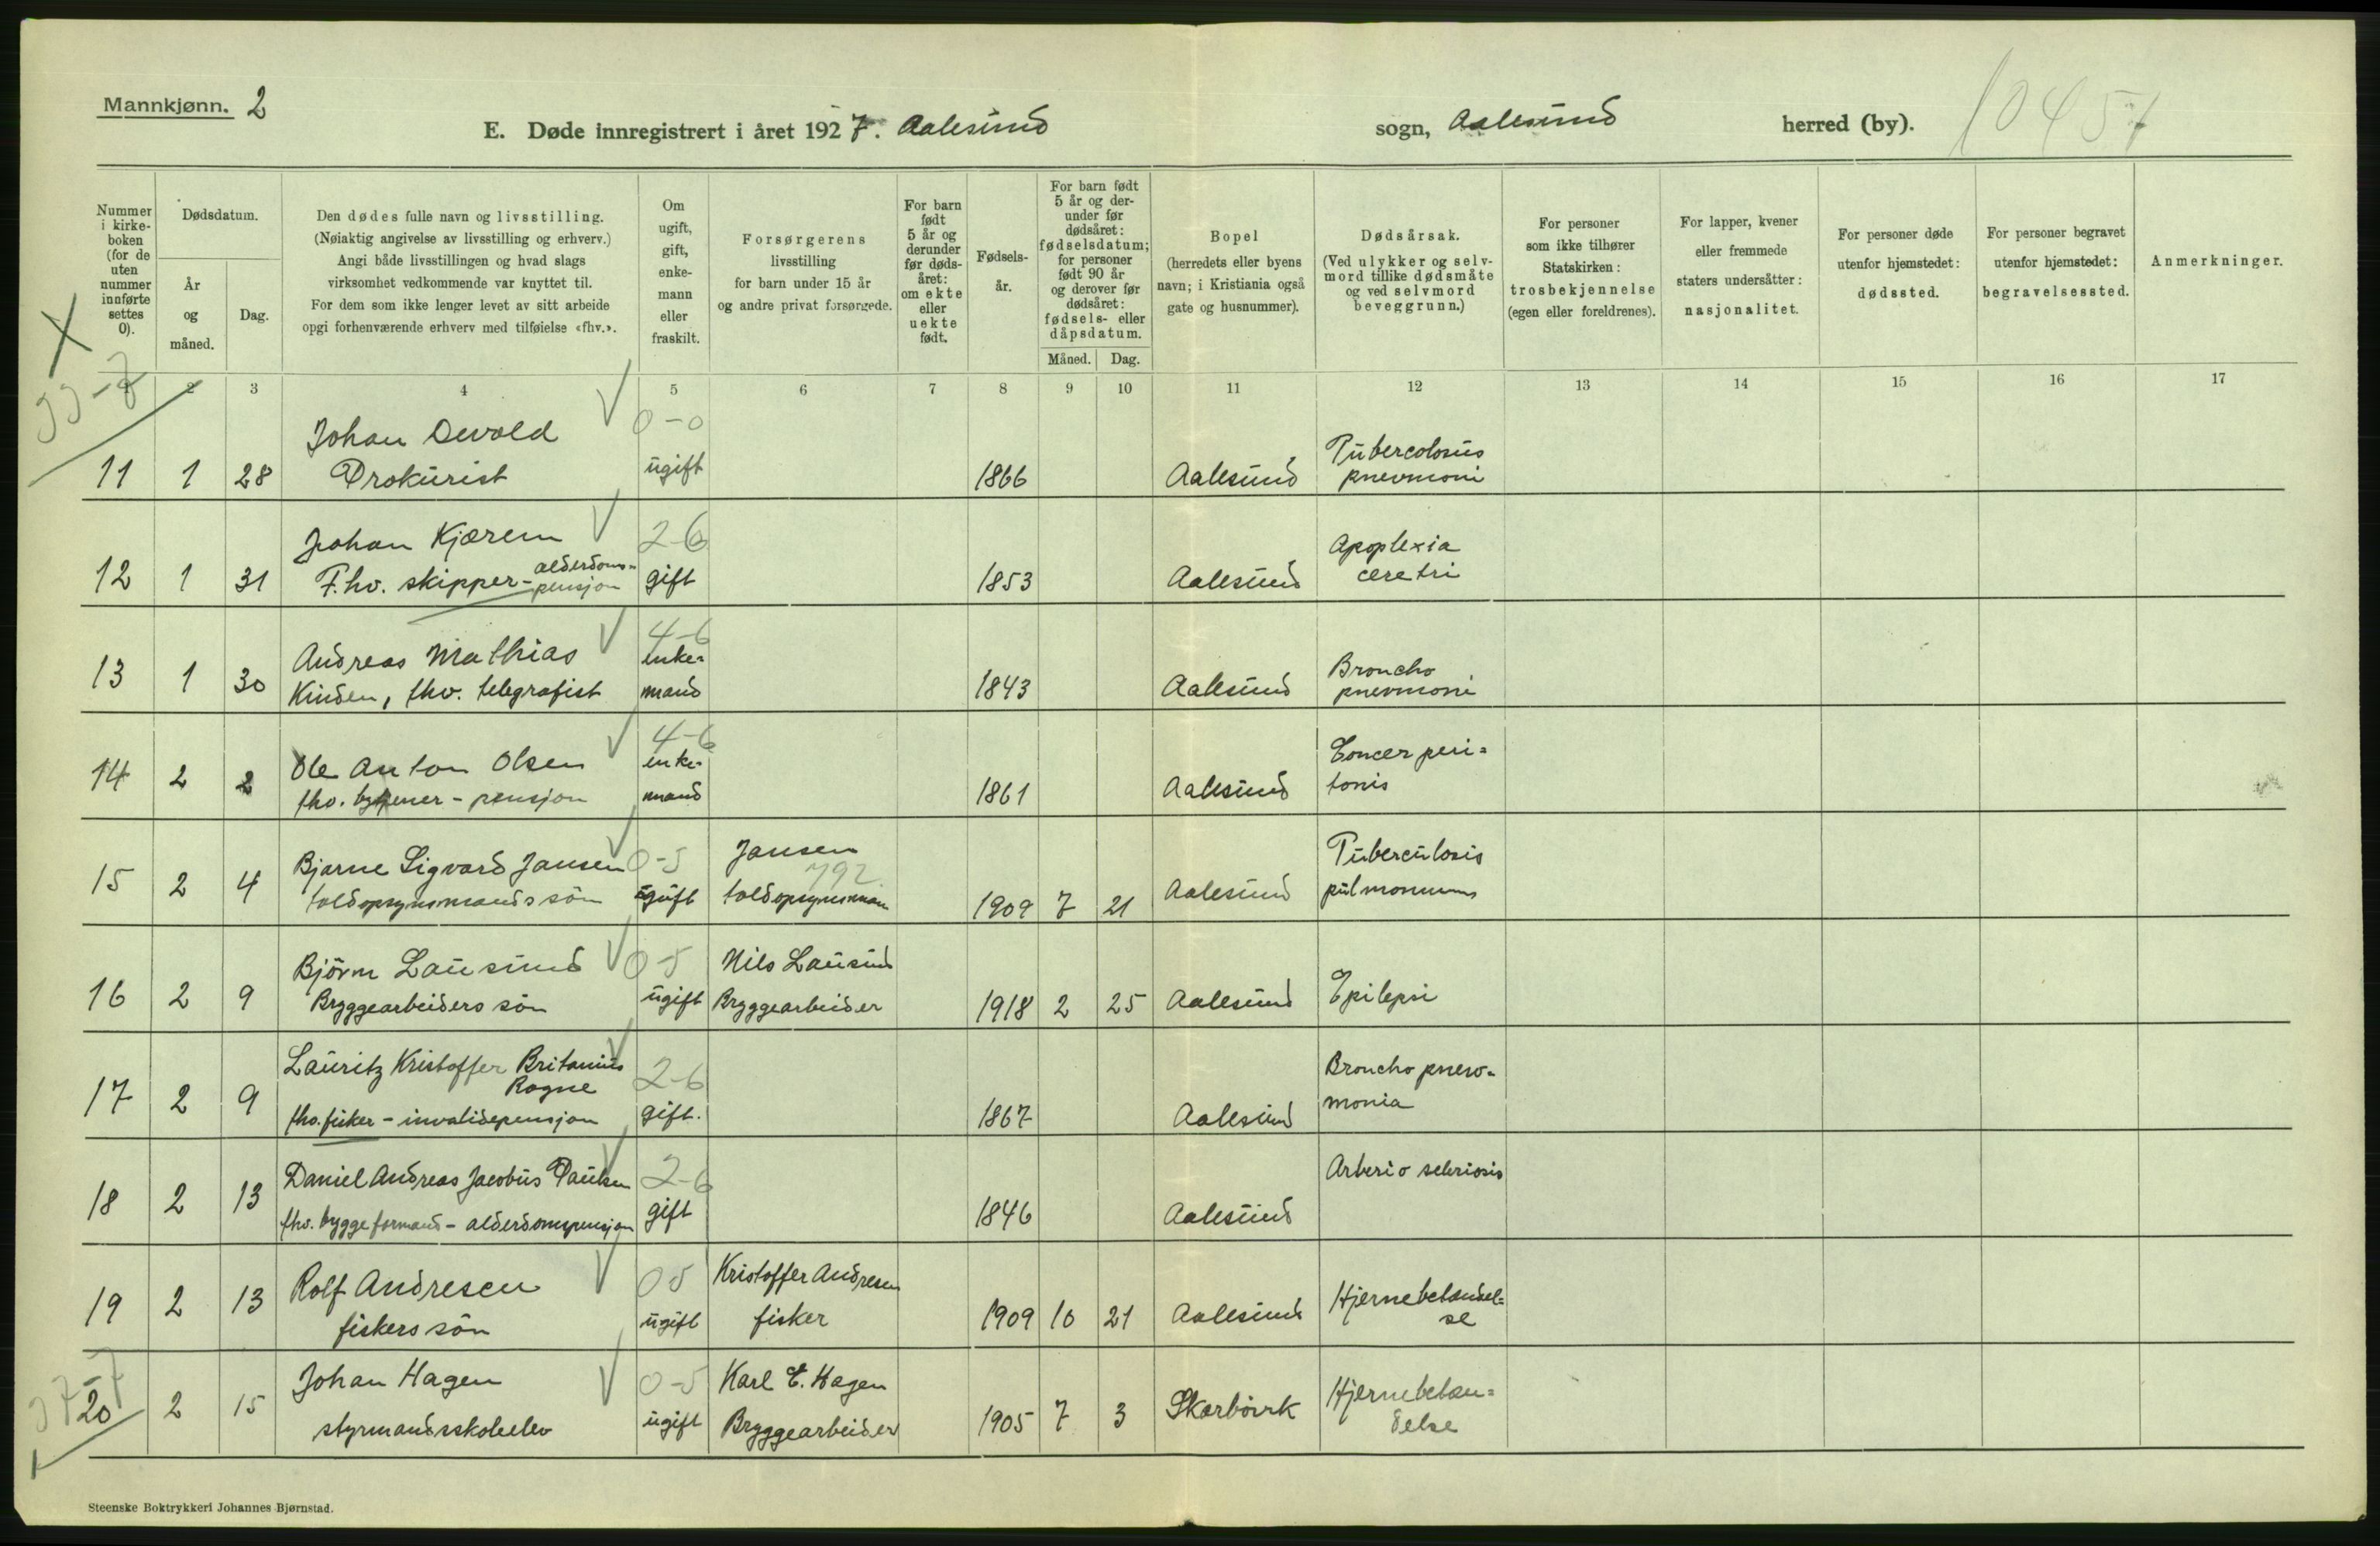 Mannkjønn. 2
E. Døde innregistrert i året 1927. Aalesund sogn, Aalesund herred (by). 10457
Nummer i kirke-boken (for de uten nummer innførte settes 0).
Dødsdatum.
År og måned.
Dag.
Den dødes fulle navn og livsstilling.
(Nøiaktig angivelse av livsstilling og erhverv.)
Angi både livsstillingen og hvad slags
virksomhet vedkommende var knyttet til.
For dem som ikke lenger levet av sitt arbeide
opgi forhenværende erhverv med tilføielse «fhv.».
Om ugift, gift, enke-mann eller fraskilt.
Forsørgerens
livsstilling
for barn under 15 år
og andre privat forsørgede.
For barn født 5 år og derunder før døds-året: om ekte eller uekte født.
Fødsels-år.
For barn født 5 år og der-under før dødsåret: fødselsdatum; for personer født 90 år og derover før dødsåret: fødsels- eller dåpsdatum.
Måned. Dag.
Bopel
(herredets eller byens
navn; i Kristiania også
gate og husnummer).
Dødsårsak.
(Ved ulykker og selv-
mord tillike dødsmåte
og ved selvmord
beveggrunn.)
For personer
som ikke tilhører
Statskirken:
trosbekjennelse
(egen eller foreldrenes).
For lapper, kvener
eller fremmede
staters undersåtter:
nasjonalitet.
For personer døde
utenfor hjemstedet:
dødssted.
For personer begravet
utenfor hjemstedet:
begravelsessted.
Anmerkninger.
1 2 3 4 5 6 7 8 9 10 11 12 13 14 15 16 17
Johan Devold 0-0 Tubercolosus
11 1 28 Prokurist ugift 1866 Aalesund pnevmoni
Johan Kjærem 2-6 Apoplexia
12 1 31 F.hv. skipper - alderdoms-pensjon gift 1853 Aalesund ceretri
Andreas Mathias 4-6 enke- Broncho
13 1 30 Kinden, fhv. telegrafist mand 1843 Aalesund pnevmoni
Ole Anton Olsen 4-6 enke- Concer peri-
14 2 2 fhv. bytjener - pensjon mand 1861 Aalesund tonis
Bjarne Sigvard Jansen 0-5 Jansen 792 Tuberculosis
15 2 4 toldopsynsmands søn ugift toldopsynsman 1909 7 21 Aalesund pulmonums
Bjørn Lausund 0-5 Nils Lausund
16 2 9 Bryggearbeiders søn ugift Bryggearbeider 1918 2 25 Aalesund Epilepsi
Lauritz Kristoffer Britanius Rogne 2-6 Broncho pnevo-
17 2 9 fhv. fisker - invalidepensjon gift. 1867 Aalesund monia
Daniel Andreas Jacobus Paulsen 2-6 Arterio seleriosis
18 2 13 fhv. byggeformand - alderdomspensjon gift 1846 Aalesund
Rolf Andresen 0 5 Kristoffer Andresen Hjernebetændel-
19 2 13 fiskers søn ugift fisker 1909 10 21 Aalesund se
Johan Hagen 0-5 Karl E. Hagen Hjernebetæn-
20 2 15 styrmandsskoleelev ugift Bryggearbeider 1905 7 3 Skarbøvik delse
Steenske Boktrykkeri Johannes Bjørnstad.